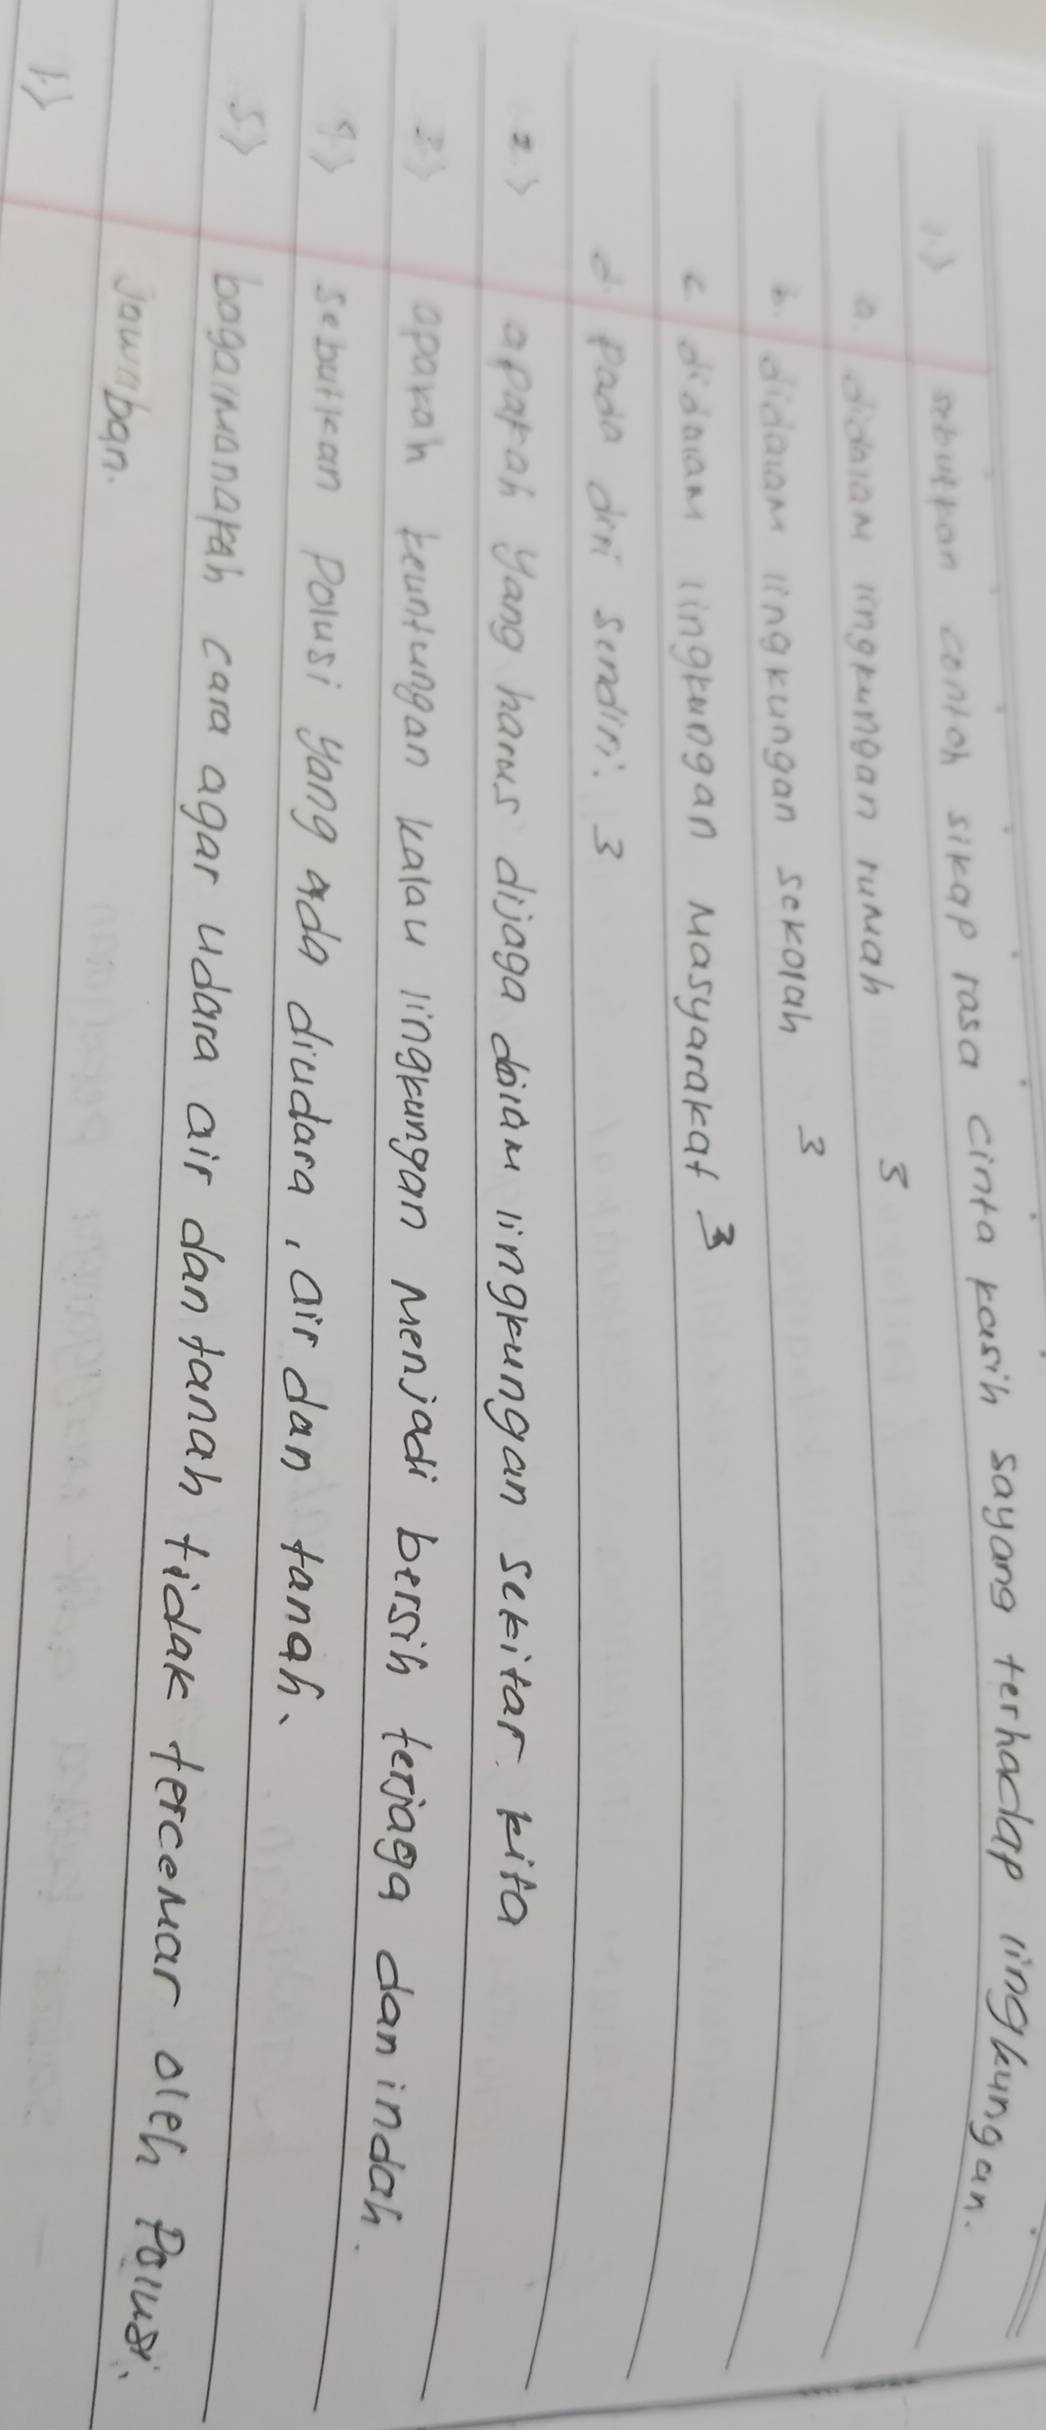 1.) sebutkan contoh sikap rasa cinta kasih sayang terhadap lingkungan.
a. didalam lingkungan rumah 5
b. didalam lingkungan sekolah 3
c. didalam lingkungan masyarakat 3
d. pada diri sendiri. 3
2.) apakah yang harus dijaga dalam lingkungan sekitar kita
3.) apakah keuntungan kalau lingkungan menjadi bersih terjaga dan indah.
4.) sebutkan polusi yang ada diudara, air dan tanah.
5.) bagaimanakah cara agar udara air dan tanah tidak tercemar oleh polusi.
Jawaban.
1.)